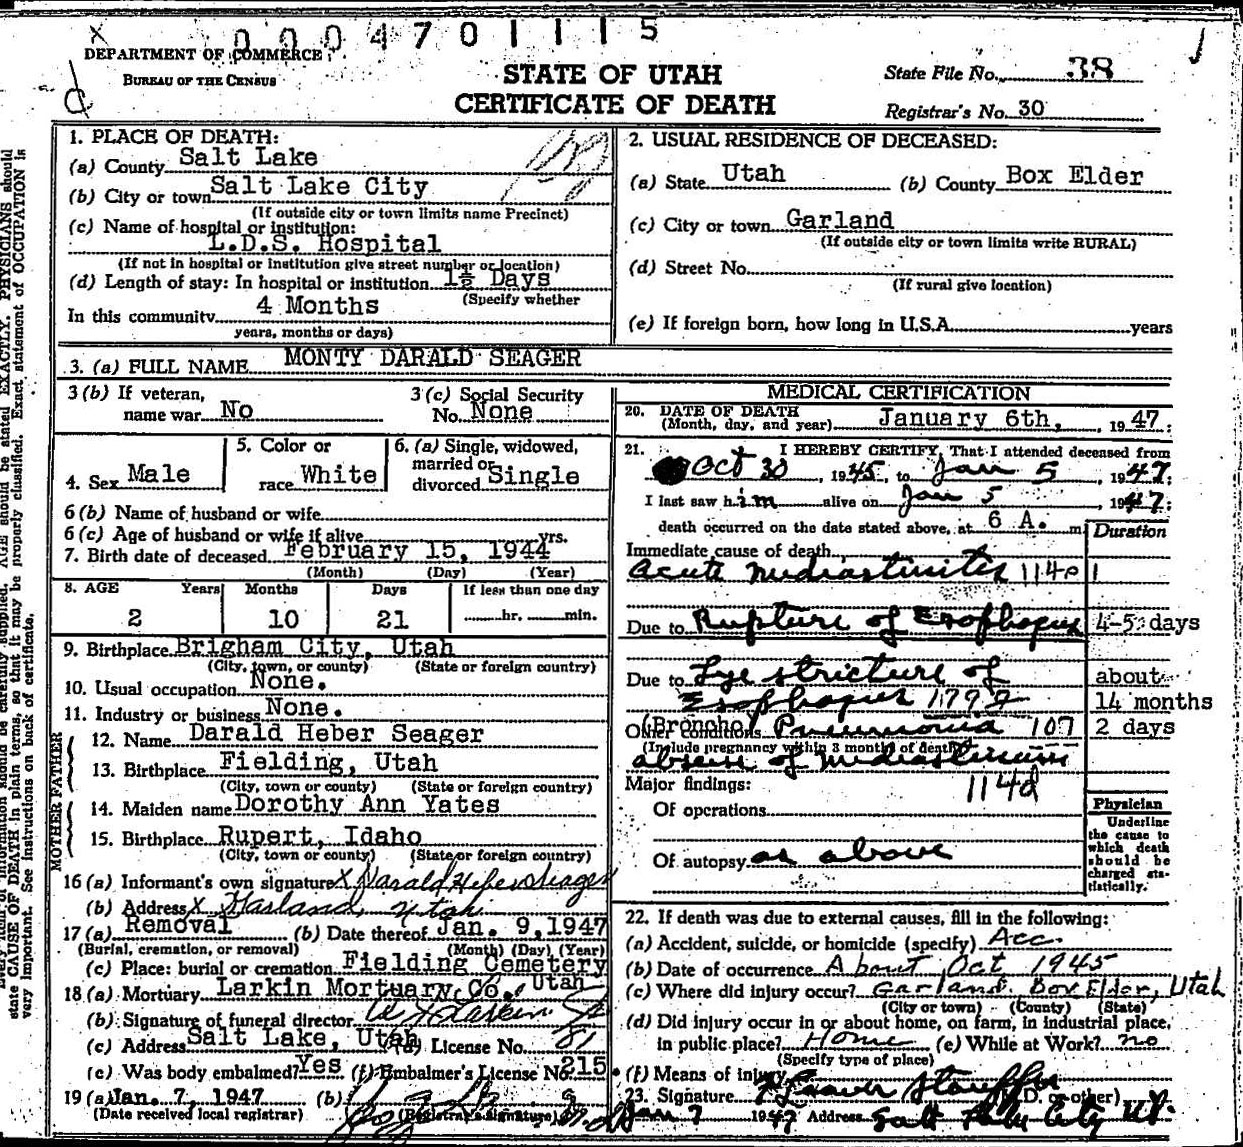 000 4701115
DEPARTMENT OF COMMERCE
BUREAU OF THE CENSUS
STATE OF UTAH
CERTIFICATE OF DEATH
State File No. 38
Registrar's No. 30
1. PLACE OF DEATH:
(a) County Salt Lake
(b) City or town Salt Lake City
(If outside city or town limits name Precinct)
(c) Name of hospital or institution:
L.D.S. Hospital
(If not in hospital or institution give street number or location)
(d) Length of stay: In hospital or institution 1½ Days
(Specify whether
In this community 4 Months
years, months or days)
2. USUAL RESIDENCE OF DECEASED:
(a) State Utah (b) County Box Elder
(c) City or town Garland
(If outside city or town limits write RURAL)
(d) Street No.
(If rural give location)
(e) If foreign born, how long in U.S.A. years
3. (a) FULL NAME MONTY DARALD SEAGER
3 (b) If veteran,
name war No
3 (c) Social Security
No. None
4. Sex Male
5. Color or
race White
6. (a) Single, widowed,
married or
divorced Single
6 (b) Name of husband or wife
6 (c) Age of husband or wife if alive yrs.
7. Birth date of deceased February 15, 1944
(Month) (Day) (Year)
8. AGE Years Months Days If less than one day
2 10 21 hr. min.
9. Birthplace Brigham City, Utah
(City, town, or county) (State or foreign country)
10. Usual occupation None.
11. Industry or business None.
FATHER
12. Name Darald Heber Seager
13. Birthplace Fielding, Utah
(City, town or county) (State or foreign country)
MOTHER
14. Maiden name Dorothy Ann Yates
15. Birthplace Rupert, Idaho
(City, town or county) (State or foreign country)
16 (a) Informant's own signature X Darald Heber Seager
(b) Address X Garland, Utah
17 (a) Removal (b) Date thereof Jan. 9, 1947
(Burial, cremation, or removal) (Month) (Day) (Year)
(c) Place: burial or cremation Fielding Cemetery
18 (a) Mortuary Larkin Mortuary Co., Utah
(b) Signature of funeral director
(c) Address Salt Lake, Utah (d) License No. 81
(e) Was body embalmed? Yes (f) Embalmer's License No. 215
19 (a) Jan. 7, 1947 (b)
(Date received local registrar) (Registrar's signature)
MEDICAL CERTIFICATION
20. DATE OF DEATH
(Month, day, and year) January 6th, 1947:
21. I HEREBY CERTIFY, That I attended deceased from
Oct 30, 1945, to Jan 5, 1947:
I last saw him alive on Jan 5, 1947:
death occurred on the date stated above, at 6 A. m
Duration
Immediate cause of death
Acute Mediastinites 114d 1
Due to Rupture of Esophogus 4-5 days
Due to Lye stricture of about
Esophogus 179 14 months
Other conditions (Broncho) Pneumonia 107 2 days
(Include pregnancy within 3 months of death)
abscess of Mediastinum
114d
Major findings:
Of operations
Of autopsy as above
Physician
Underline
the cause to
which death
should be
charged sta-
tistically.
22. If death was due to external causes, fill in the following:
(a) Accident, suicide, or homicide (specify) Acc.
(b) Date of occurrence About Oct 1945
(c) Where did injury occur? Garland. Box Elder, Utah
(City or town) (County) (State)
(d) Did injury occur in or about home, on farm, in industrial place,
in public place? Home (e) While at Work? no
(Specify type of place)
(f) Means of injury
23. Signature (M.D. or other)
Jan 7 1947 Address Salt Lake City Ut.